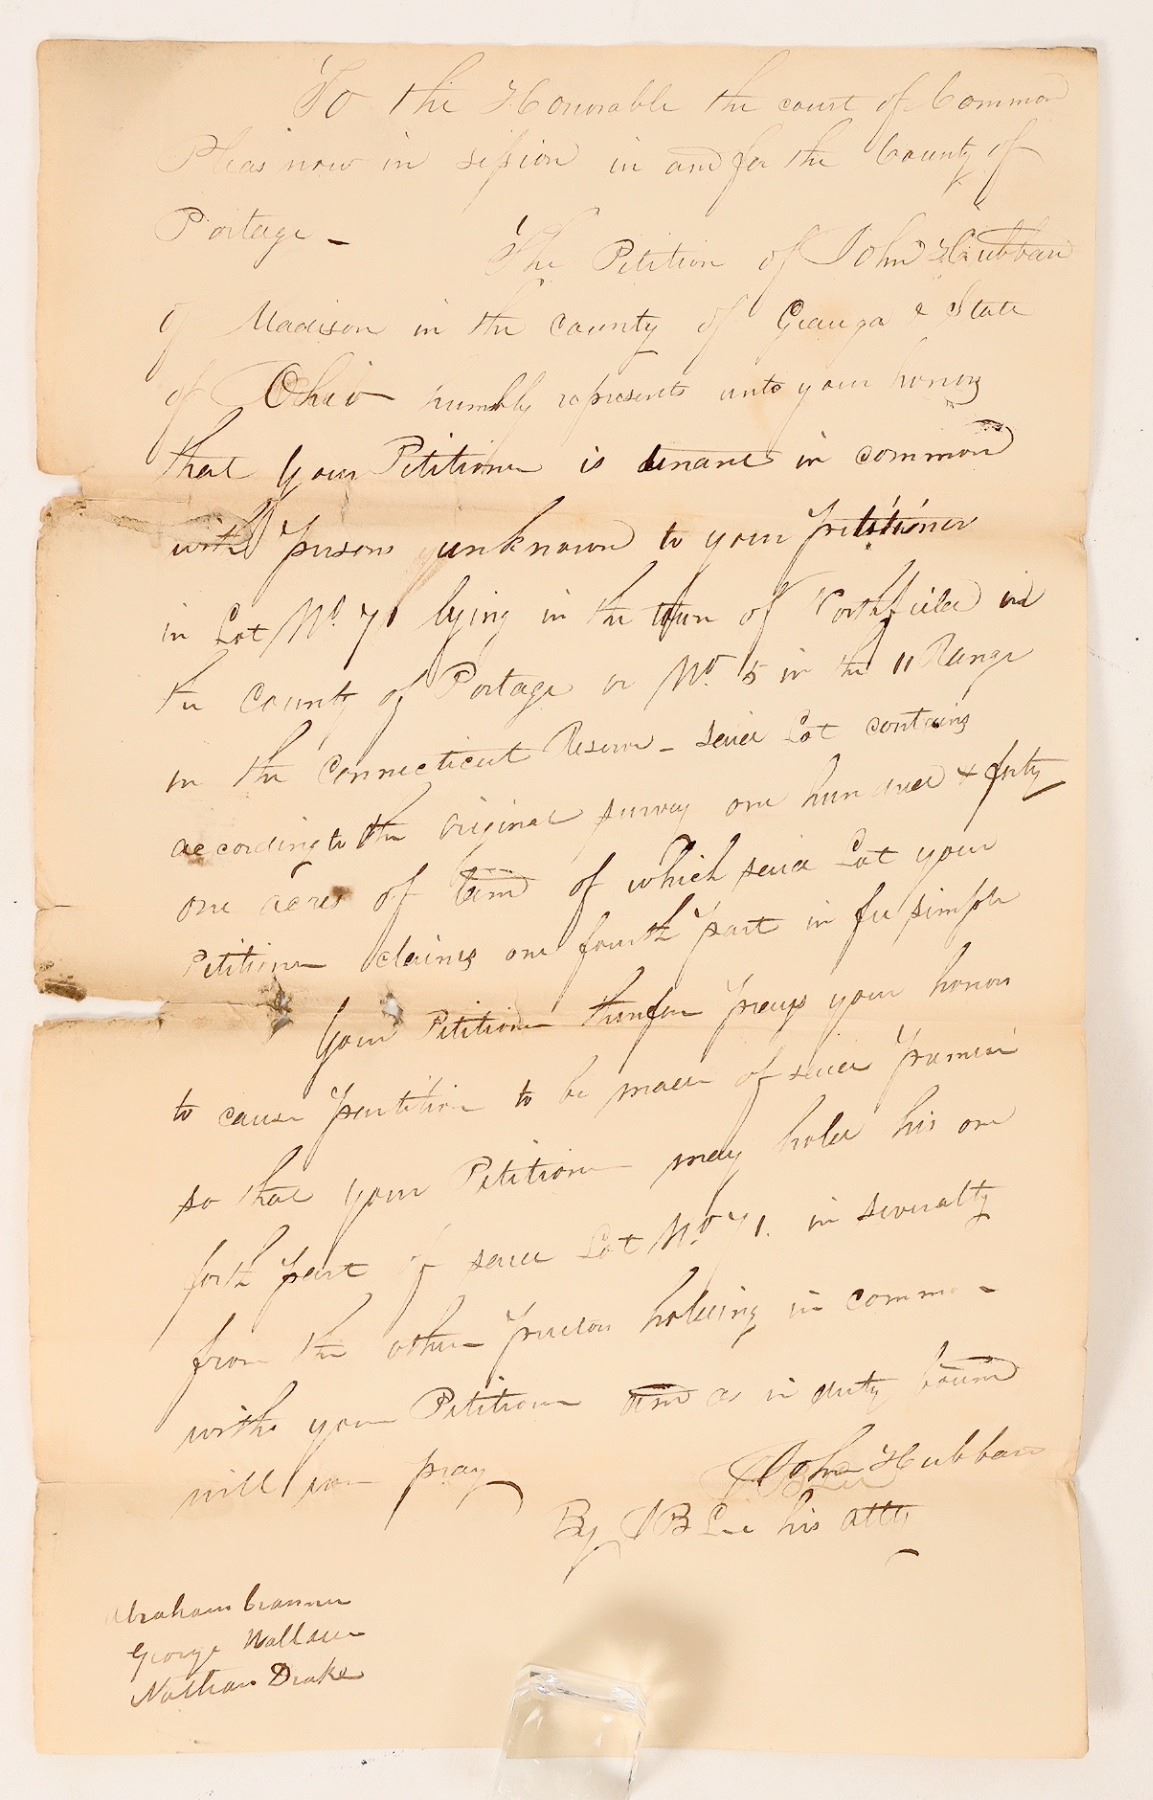 To the Honorable the court of Common
Pleas now in session in and for the County of
Portage -
The Petition of John Hubbard
of Madison in the county of Geauga & State
of Ohio humbly represents unto your honors
that your Petitioner is tenant in common
with persons unknown to your petitioner
in Lot No. 71 lying in the town of Northfield in
the County of Portage or No. 5 in the 11 Range
in the Connecticut Reserve - said Lot contains
according to the original survey one hundred & forty
one acres of land of which said Lot your
Petitioner claims one fourth part in fee simple
Your Petitioner therefore prays your honors
to cause partition to be made of said premises
so that your Petitioner may hold his one
forth part of said Lot No. 71. in severalty
from the other persons holding in common
with your Petitioner and as in duty bound
will ever pray
John Hubbard
By J B Lee his atty
Abraham Cranmer
George Wallace
Nathan Drake